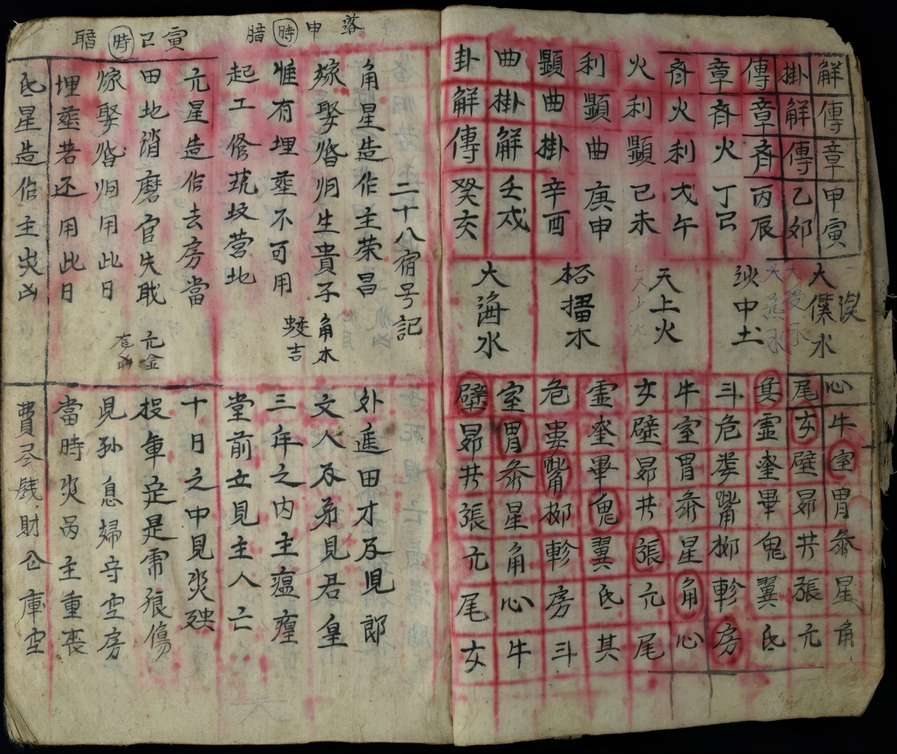 解傳章甲寅
掛解傳乙卯
傳章斉丙辰
章斉火丁巳
斉火利戊午
火利顕己未
利顕曲庚申
顕曲掛辛酉
曲掛解壬戍
卦解傳癸亥
大水
沙中土
天上火
石榴木
大海水
心牛室胃参星角
尾女壁昴井張亢
箕虚奎畢鬼翼氐
斗危娄觜柳軫房
牛室胃参星角心
女壁昴井張亢尾
虚奎畢鬼翼氐箕
危娄觜柳軫房斗
室胃参星角心牛
壁昴井張亢尾女
落申時腊
寅巳時腊
二十八宿号記
角星造作主荣昌
外進田才及見郎
嫁娶婚姻生貴子
文人及弟見君皇
惟有埋葬不可用
三年之内主瘟瘟
起工修筑坟营地
堂前立見主人亡
角木蛟吉
亢星造作去房當
十日之中見災殃
田地消磨官失戝
投軍定是虎狼傷
嫁娶婚姻用此日
児孙息婦守空房
埋葬若还用此日
當時災禍主重喪
亢金
氐星造作主災凶
費尽銭財仓庫空